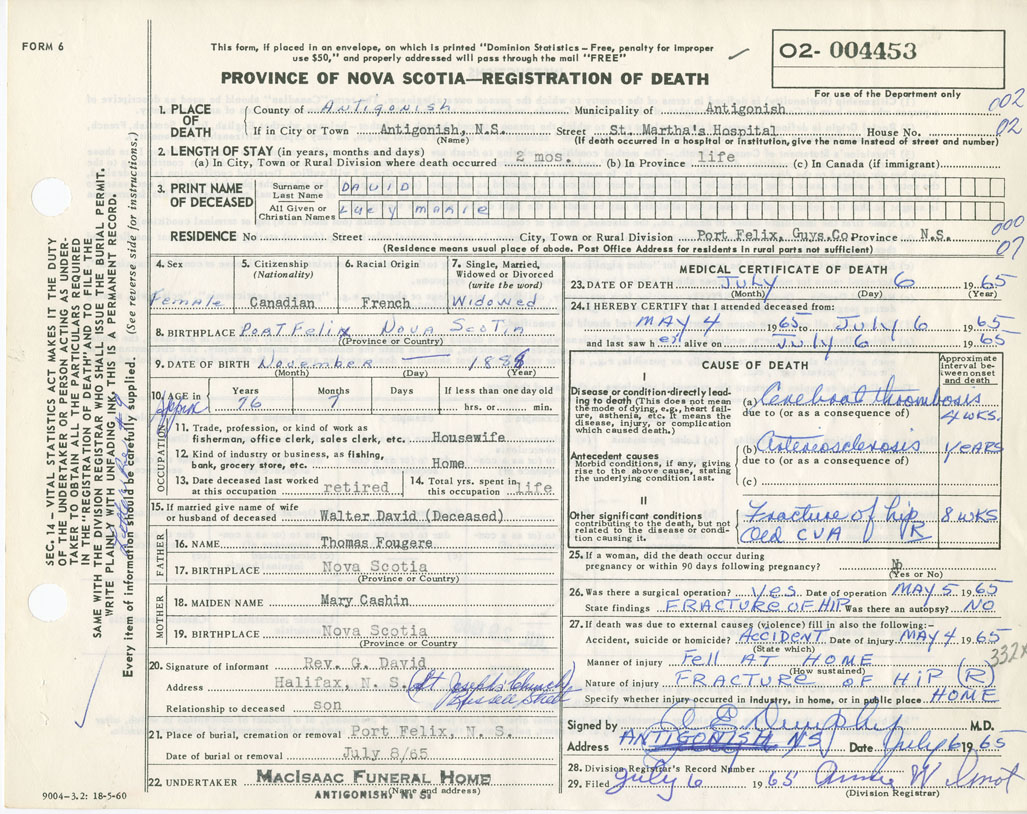 FORM 6
This form, if placed in an envelope, on which is printed "Dominion Statistics – Free, penalty for improper
use $50," and properly addressed will pass through the mail "FREE"
PROVINCE OF NOVA SCOTIA—REGISTRATION OF DEATH
02- 004453
For use of the Department only
002
02
1. PLACE OF DEATH
County of ANTIGONISH Municipality of Antigonish
If in City or Town Antigonish, N.S. Street St. Martha's Hospital House No.
(Name) (If death occurred in a hospital or institution, give the name instead of street and number)
2. LENGTH OF STAY (in years, months and days)
(a) In City, Town or Rural Division where death occurred 2 mos. (b) In Province life (c) In Canada (if immigrant)
3. PRINT NAME OF DECEASED
Surname or Last Name DAVID
All Given or Christian Names Lucy Marie
RESIDENCE No Street City, Town or Rural Division Port Felix, Guys.Co Province N.S.
(Residence means usual place of abode. Post Office Address for residents in rural parts not sufficient)
000
07
4. Sex Female
5. Citizenship (Nationality) Canadian
6. Racial Origin French
7. Single, Married, Widowed or Divorced (write the word) Widowed
8. BIRTHPLACE PORT FELIX NOVA SCOTIA
(Province or Country)
9. DATE OF BIRTH November — 1888
(Month) (Day) (Year)
10. AGE in Years Months Days If less than one day old
76 7 hrs. or min.
OCCUPATION
11. Trade, profession, or kind of work as
fisherman, office clerk, sales clerk, etc. Housewife
12. Kind of industry or business, as fishing,
bank, grocery store, etc. Home
13. Date deceased last worked
at this occupation retired
14. Total yrs. spent in
this occupation life
15. If married give name of wife
or husband of deceased Walter David (Deceased)
FATHER
16. NAME Thomas Fougere
17. BIRTHPLACE Nova Scotia
(Province or Country)
MOTHER
18. MAIDEN NAME Mary Cashin
19. BIRTHPLACE Nova Scotia
(Province or Country
20. Signature of informant Rev. G. David
Address Halifax, N. S. (St Joseph's Church
Relationship to deceased son
21. Place of burial, cremation or removal Port Felix, N. S.
Date of burial or removal July 8/65
22. UNDERTAKER MACISAAC FUNERAL HOME
(Name and address)
ANTIGONISH, N. S.
9004–3.2: 18-5-60
MEDICAL CERTIFICATE OF DEATH
23. DATE OF DEATH JULY 6 1965
(Month) (Day) (Year)
24. I HEREBY CERTIFY that I attended deceased from:
MAY 4 1965 to JULY 6 1965
and last saw her alive on JULY 6 1965
CAUSE OF DEATH
Approximate interval between onset and death
I
Disease or condition directly leading to death (This does not
mean the mode of dying, e.g., heart failure, asthenia, etc. It means the
disease, injury, or complication
which caused death.)
(a) Cerebral thrombosis 4 WKS.
due to (or as a consequence of)
(b) Arteriosclerosis YEARS
due to (or as a consequence of)
Antecedent causes
Morbid conditions, if any, giving
rise to the above cause, stating
the underlying condition last.
(c)
II
Other significant conditions
contributing to the death, but not
related to the disease or condition causing it.
Fracture of hip R 8 WKS
Old CVA
25. If a woman, did the death occur during
pregnancy or within 90 days following pregnancy? No
(Yes or No)
26. Was there a surgical operation? Yes. Date of operation MAY 5 1965
State findings FRACTURE OF HIP Was there an autopsy? NO
27. If death was due to external causes (violence) fill in also the following:–
Accident, suicide or homicide? ACCIDENT Date of injury MAY 4 1965
(State which)
Manner of injury FELL AT HOME
(How sustained)
332x
Nature of injury FRACTURE OF HIP (R)
Specify whether injury occurred in industry, in home, or in public place HOME
Signed by M.D.
Address ANTIGONISH NS Date July 6 1965
28. Division Registrar's Record Number
29. Filed July 6 1965
(Division Registrar)
SEC. 14 – VITAL STATISTICS ACT MAKES IT THE DUTY
OF THE UNDERTAKER OR PERSON ACTING AS UNDER-
TAKER TO OBTAIN ALL THE PARTICULARS REQUIRED
IN THE "REGISTRATION OF DEATH" AND TO FILE THE
SAME WITH THE DIVISION REGISTRAR WHO SHALL ISSUE THE BURIAL PERMIT.
WRITE PLAINLY WITH UNFADING INK, THIS IS A PERMANENT RECORD.
Every item of information should be carefully supplied. (See reverse side for instructions.)